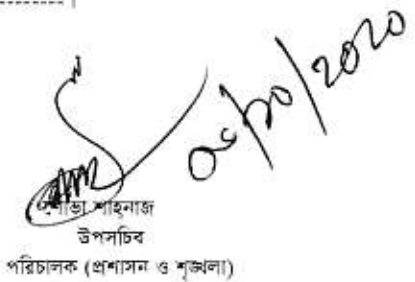 ০৫/১০/২০২০
শাহনাজ
উপসচিব
পরিচালক (প্রশাসন ও শৃঙ্খলা)